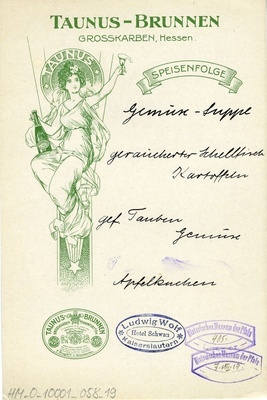 TAUNUS-BRUNNEN
GROSSKARBEN, Hessen.
TAUNUS
SPEISENFOLGE
Gemüse-Suppe
geräucherter Schellfisch
Kartoffeln
gef. Tauben
Gemüse
Apfelkuchen
TAUNUS BRUNNEN
Ludwig Wolf
Hotel Schwan
Kaiserslautern
Historischer Verein der Pfalz
Historischer Verein der Pfalz
HM_0_10001_058_19